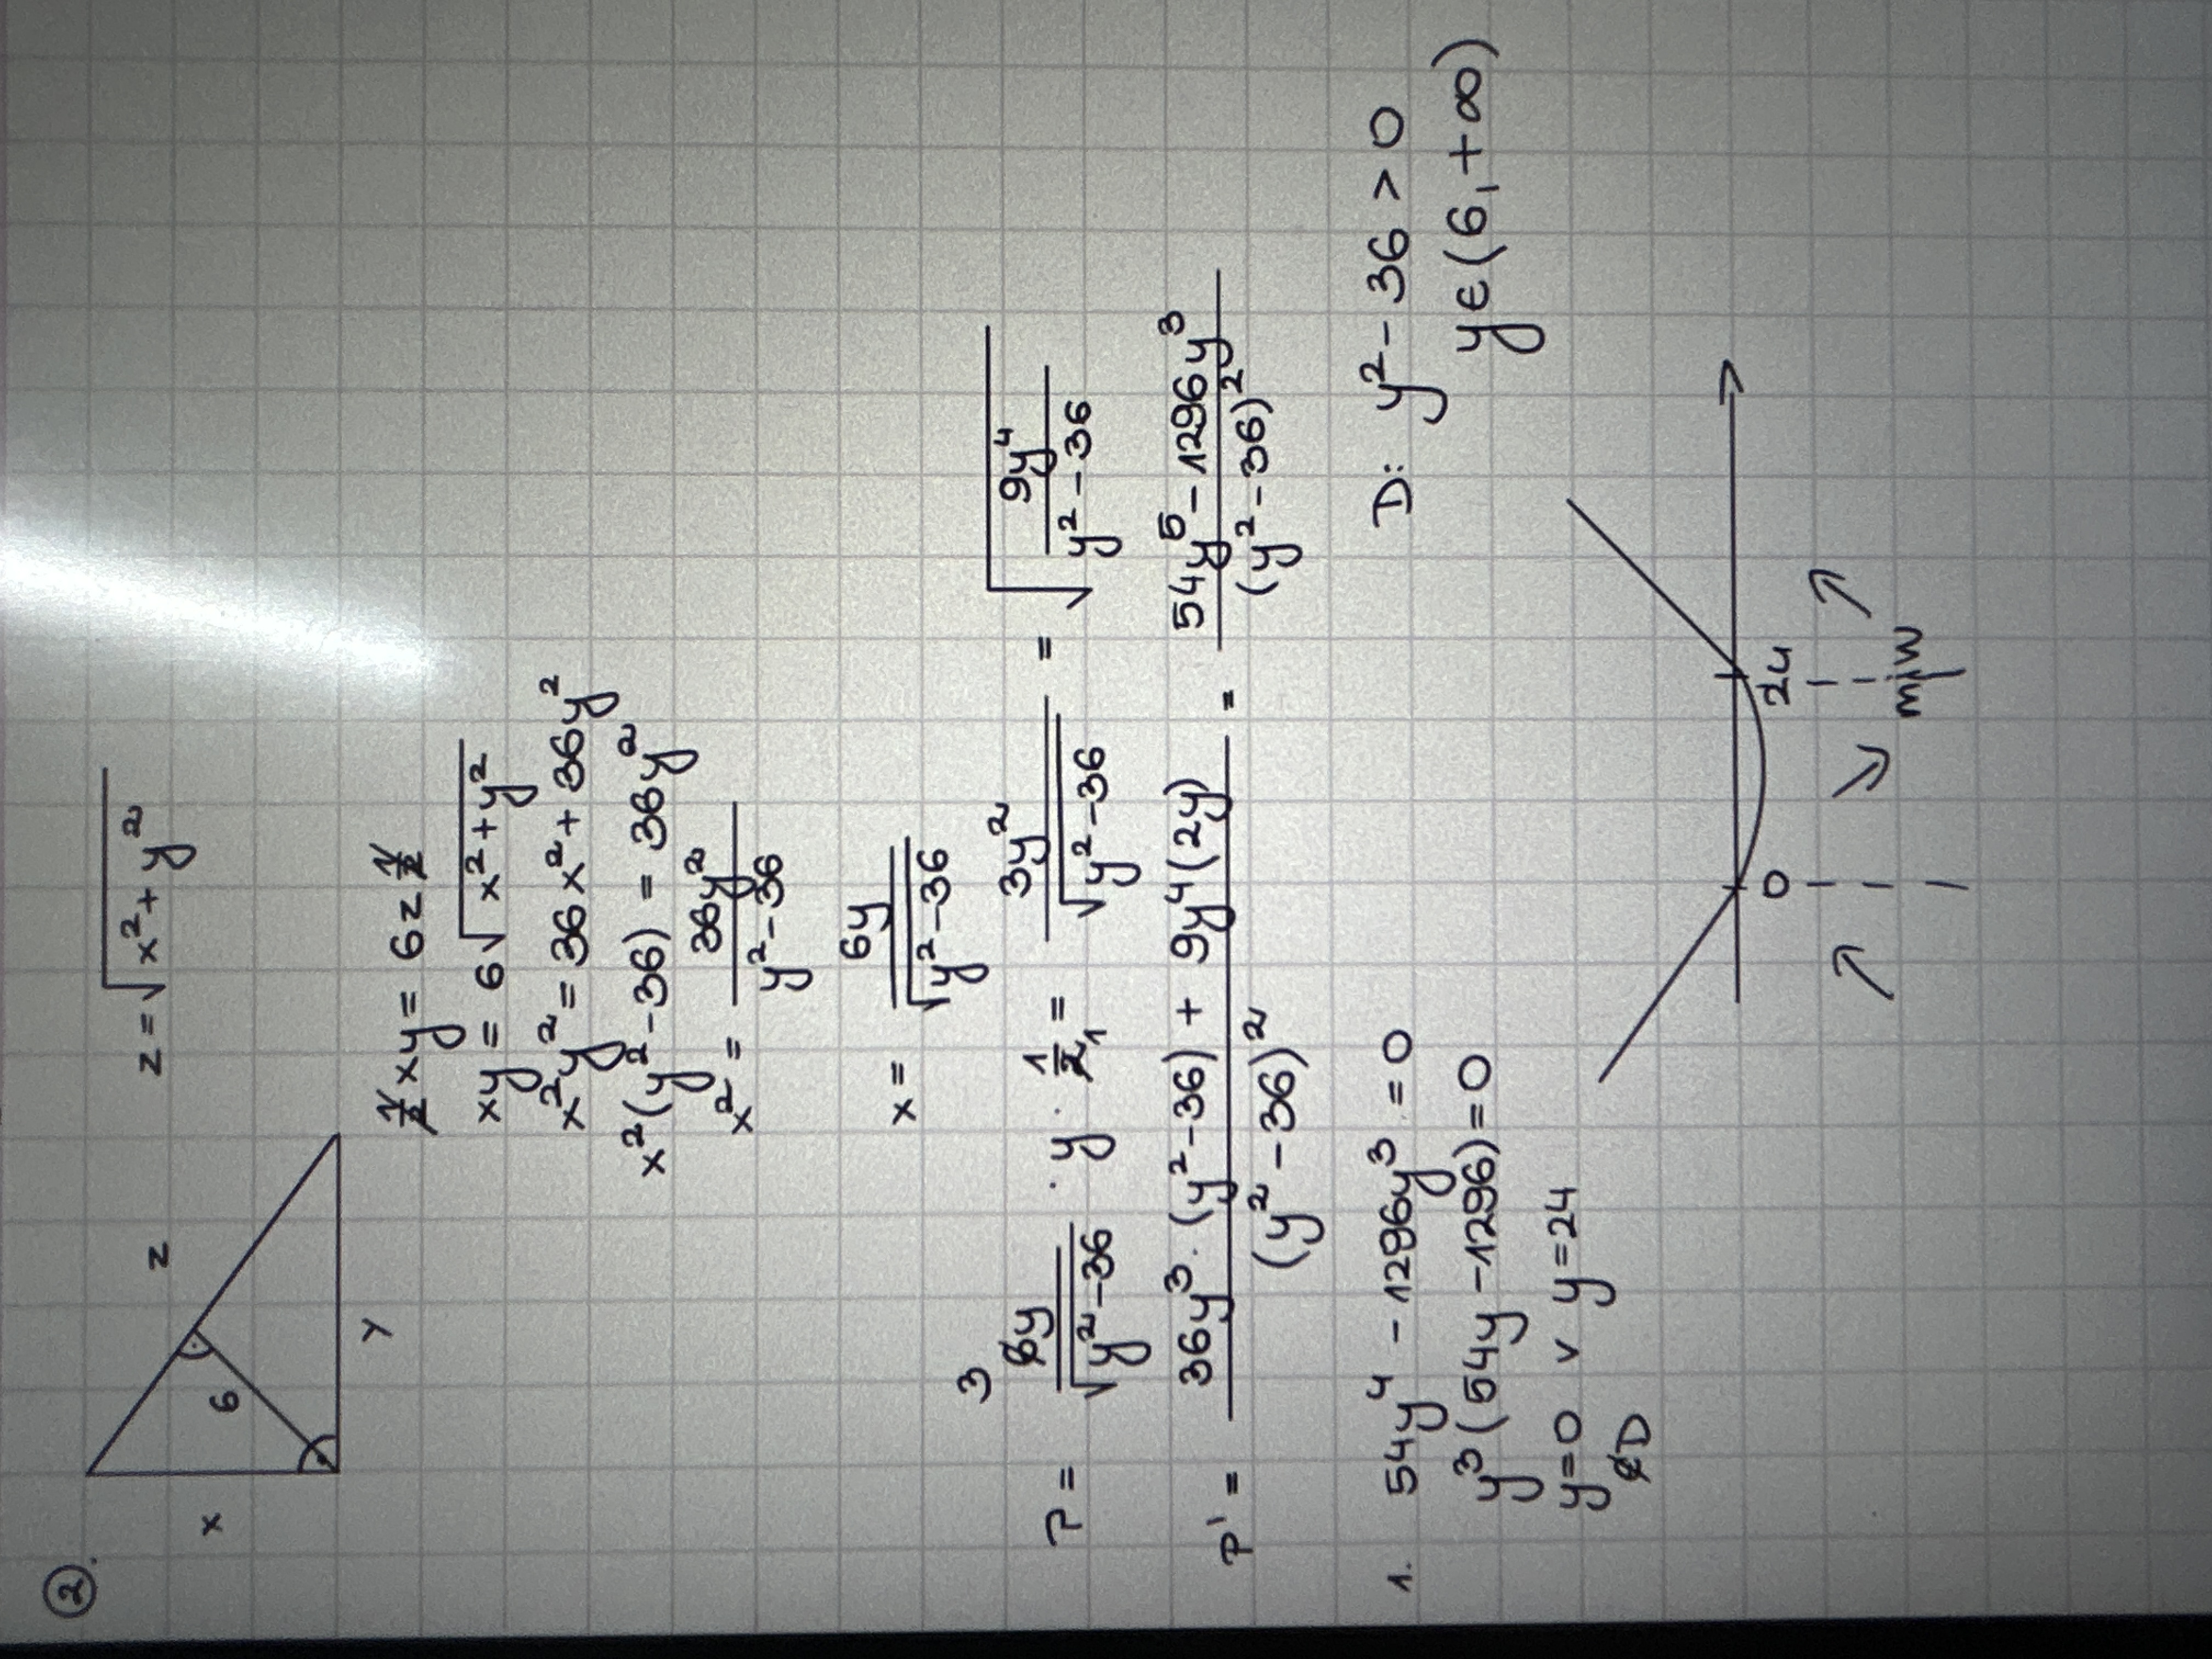 ②.
x
6
z
y
z = √(x² + y²)
½xy = 6z ½
xy = 6√(x² + y²)
x²y² = 36x² + 36y²
x²(y² - 36) = 36y²
x² = 36y² / (y² - 36)
x = 6y / √(y² - 36)
P = 3 6y / √(y² - 36) · y · 1/2 1 = 3y² / √(y² - 36) = √(9y⁴ / (y² - 36))
P' = (36y³ · (y² - 36) + 9y⁴(2y)) / (y² - 36)² = (54y⁵ - 1296y³) / (y² - 36)²
1. 54y⁴ - 1296y³ = 0
D: y² - 36 > 0
y³(54y - 1296) = 0
y ∈ (6, +∞)
y = 0 ∨ y = 24
∉D
0
24
↗ ↘ ↗
min